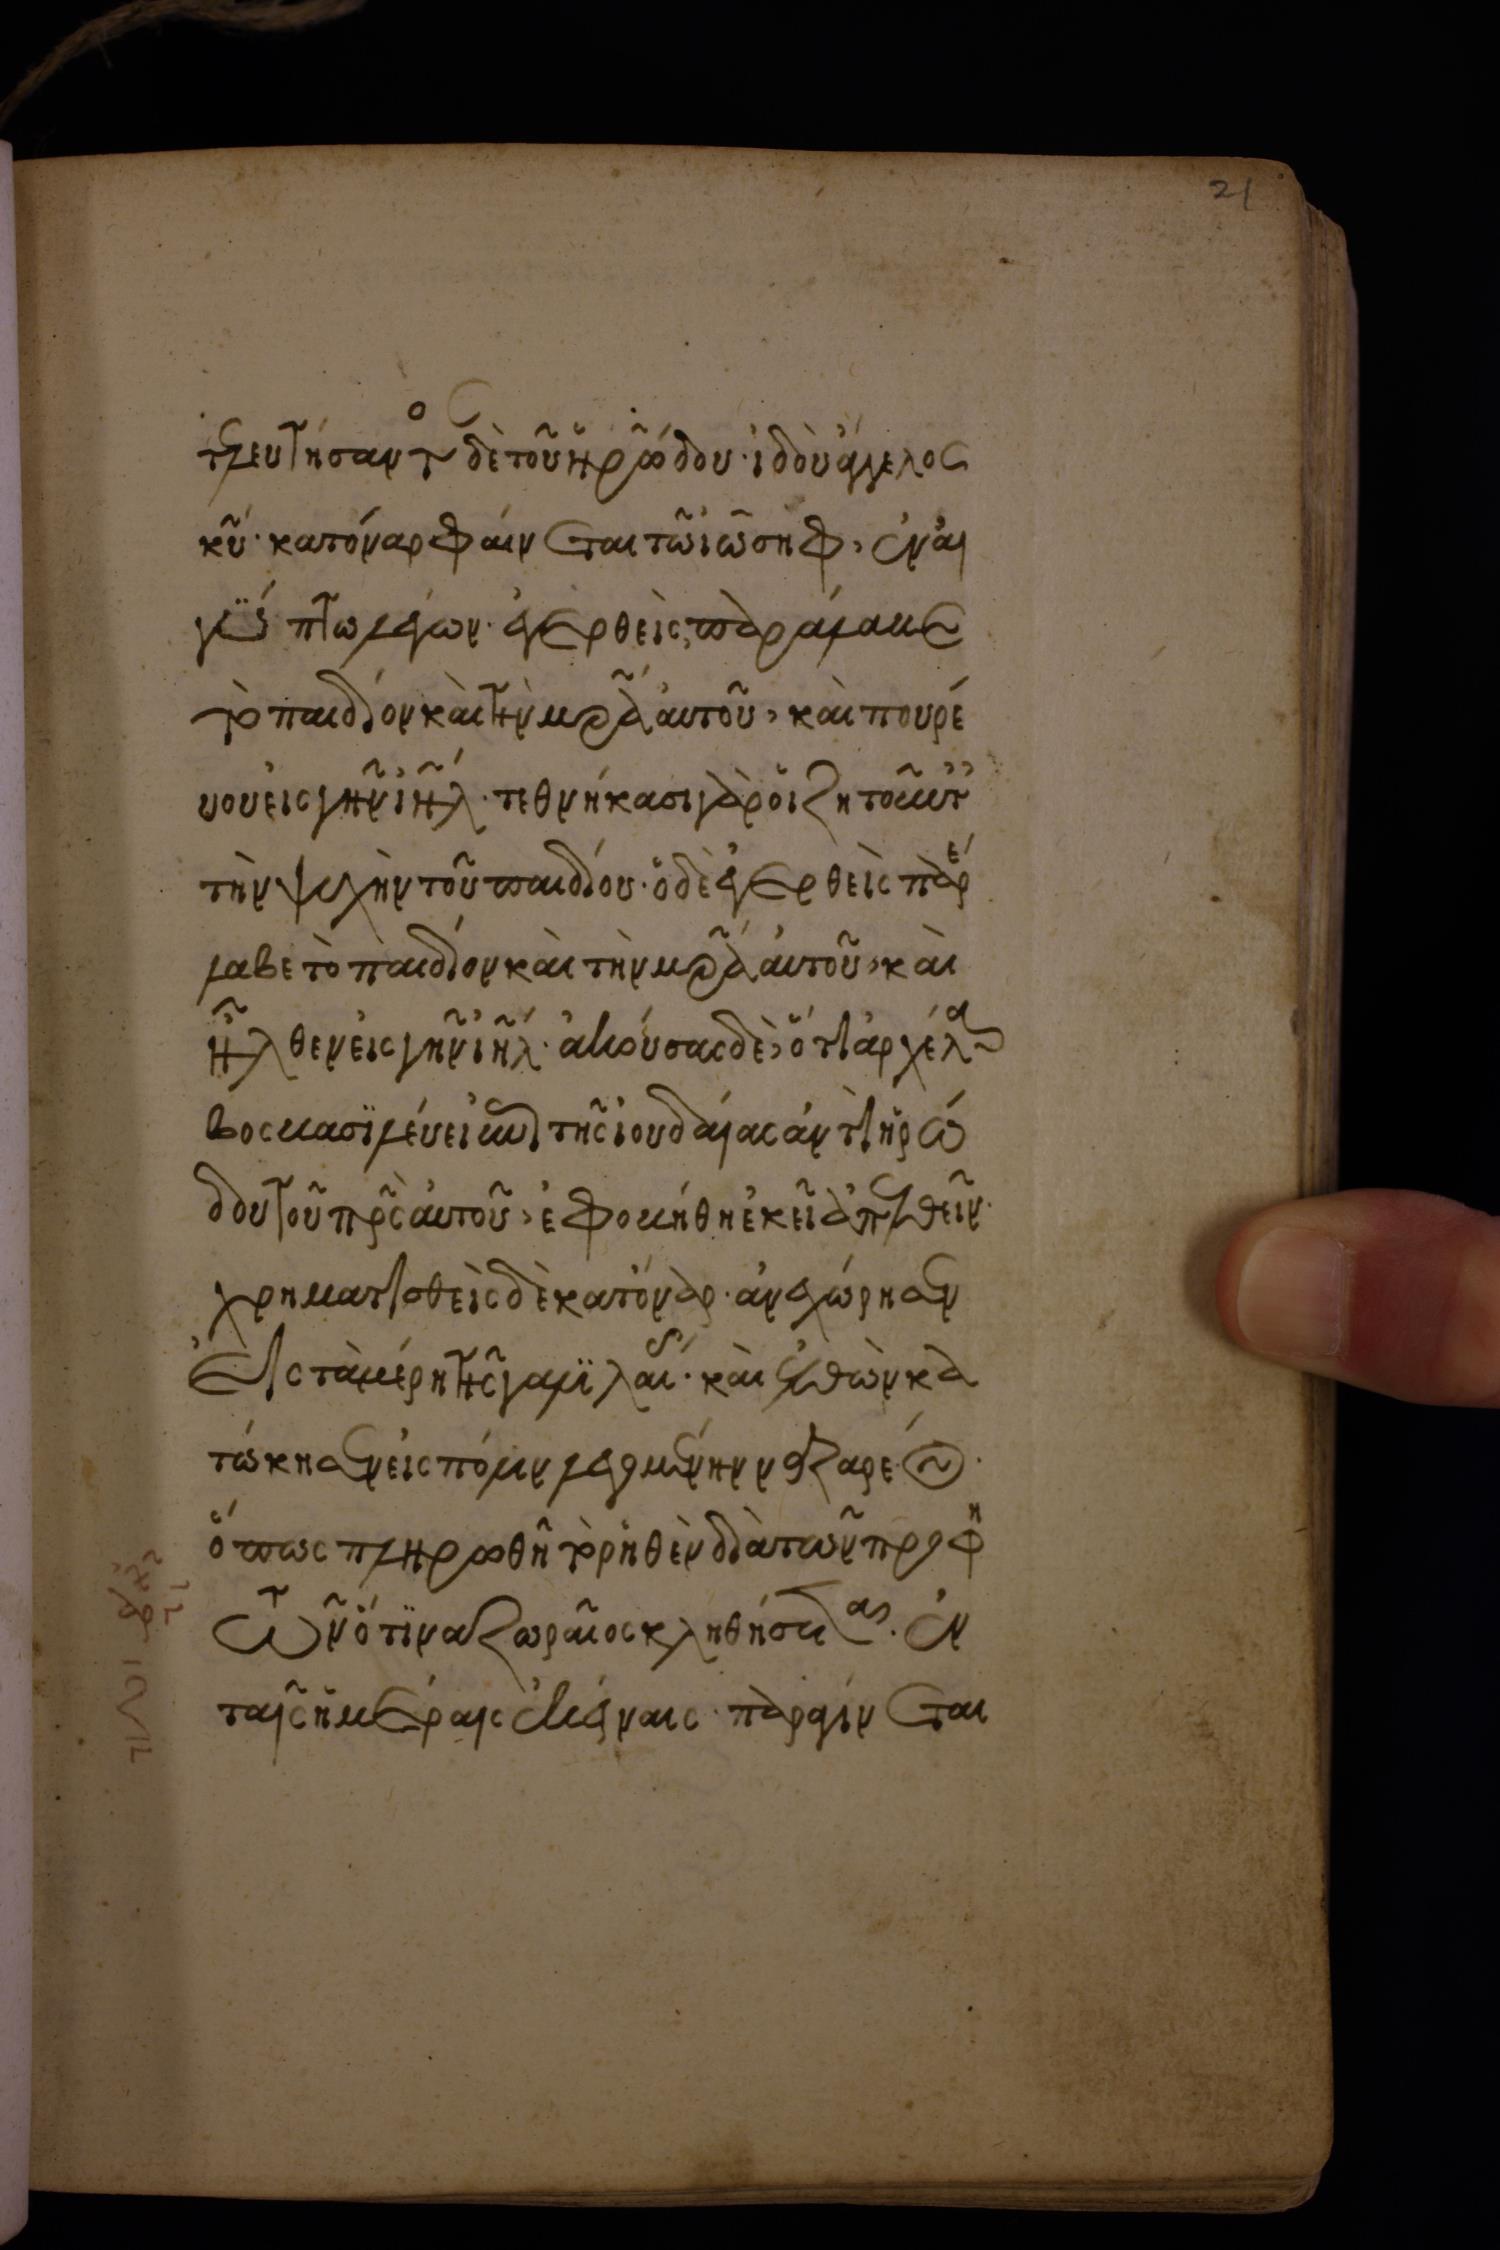 21
τελευτήσαντος δὲ τοῦ ἡρώδου· ἰδοὺ ἄγγελος
κῦ· κατόναρ φαίνεται τῶ ἰωσὴφ, ἐν αἰ
γύπτω λέγων· ἐγερθεὶς, παράλαβε
τὸ παιδίον καὶ τὴν μρ̃α αὐτοῦ, καὶ πορεύ
ου εἰς γῆν ἰῆλ· τεθνήκασι γὰρ οἱ ζητοῦντες
τὴν ψυχὴν τοῦ παιδίου· ὁ δὲ ἐγερθεὶς παρέ
λαβε τὸ παιδίον καὶ τὴν μρ̃α αὐτοῦ, καὶ
ἦλθεν εἰς γῆν ἰῆλ· ἀκούσας δὲ, ὅτι ἀρχέλα
ος βασιλεύει ἐπὶ τῆς ἰουδαίας ἀντὶ ἡρώ
δου τοῦ πρ̃ς αὐτοῦ, ἐφοβήθη ἐκεῖ ἀπελθεῖν·
χρηματισθεὶς δὲ κατόναρ· ἀνεχώρησεν
εἰς τὰ μέρη τῆς γαλιλαί· καὶ ἐλθὼν κα
τώκησεν εἰς πόλιν λεγομένην ναζαρέτ·
ὅπως πληρωθῆ τὸ ῥηθὲν διὰ τῶν προφη
τῶν ὅτι ναζωραῖος κληθήσεται. ἐν
ταῖς ἡμέραις ἐκείναις· παραγίνεται